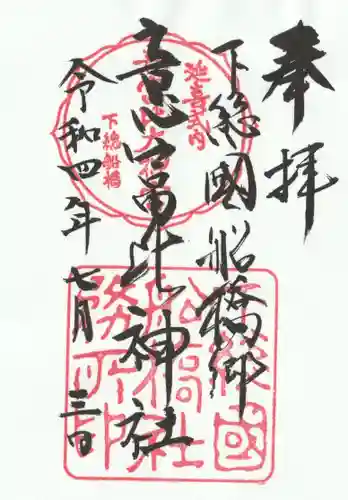 奉拝
下総國船橋郷
意富比神社
令和四年七月三日
延喜式内
下総船橋